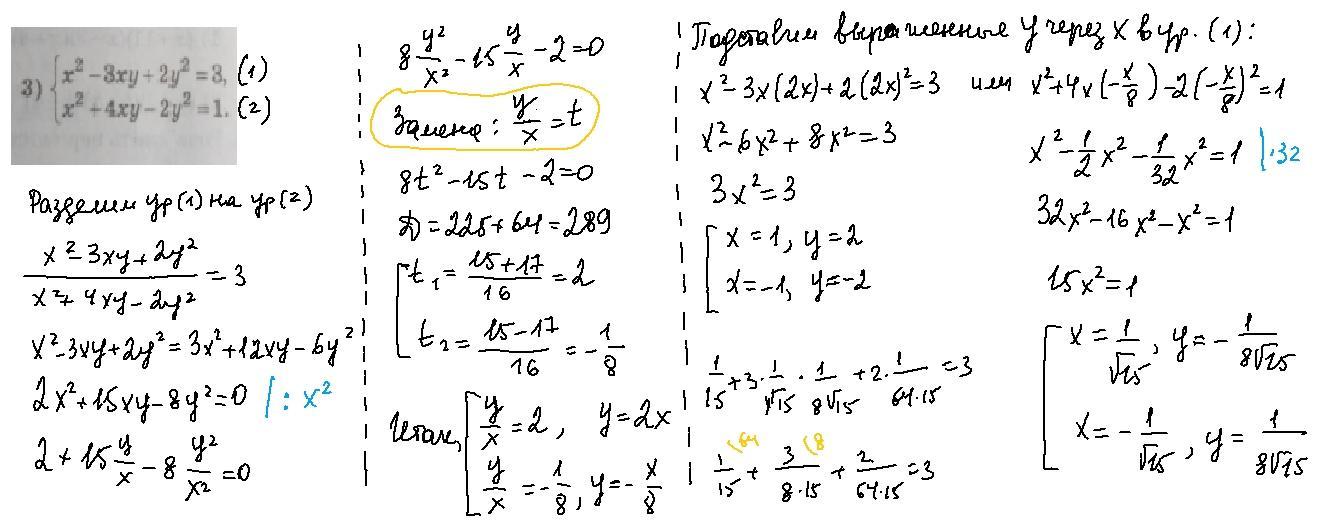 3) { x² - 3xy + 2y² = 3, (1)
x² + 4xy - 2y² = 1. (2)
Разделим ур(1) на ур(2)
(x² - 3xy + 2y²)/(x² + 4xy - 2y²) = 3
x² - 3xy + 2y² = 3x² + 12xy - 6y²
2x² + 15xy - 8y² = 0 | : x²
2 + 15 y/x - 8 y²/x² = 0
8 y²/x² - 15 y/x - 2 = 0
Замена: y/x = t
8t² - 15t - 2 = 0
D = 225 + 64 = 289
[ t₁ = (15+17)/16 = 2
t₂ = (15-17)/16 = -1/8
Итак, [ y/x = 2, y = 2x
y/x = -1/8, y = -x/8
Подставим выраженные y через x в ур. (1):
x² - 3x(2x) + 2(2x)² = 3 или x² + 4x(-x/8) - 2(-x/8)² = 1
x² - 6x² + 8x² = 3
3x² = 3
[ x = 1, y = 2
x = -1, y = -2
1/15 + 3·1/√15 · 1/8√15 + 2·1/64·15 = 3
1/15 (64 + 3/8·15 (8 + 2/64·15 = 3
x² - 1/2 x² - 1/32 x² = 1 | ·32
32x² - 16x² - x² = 1
15x² = 1
[ x = 1/√15, y = -1/8√15
x = -1/√15, y = 1/8√15